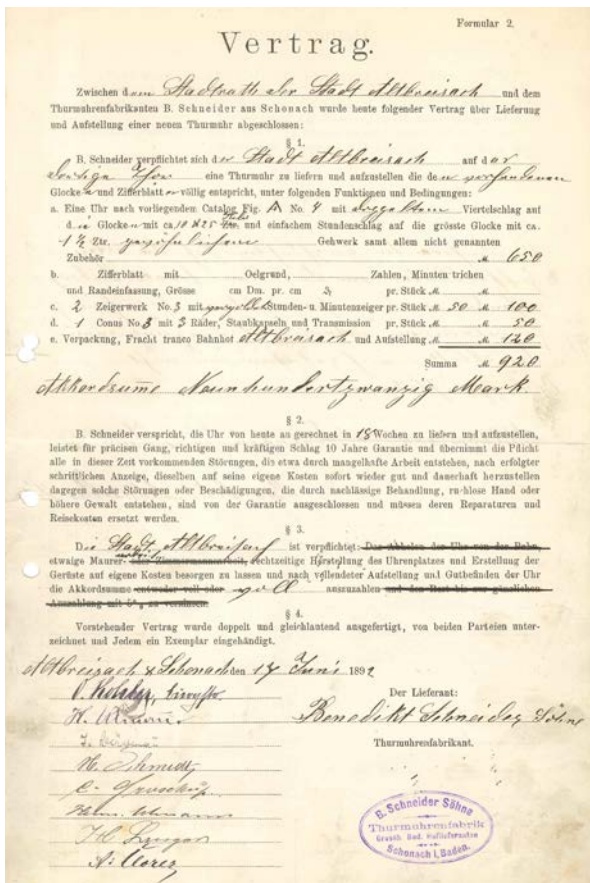 Formular 2.
Vertrag.
Zwischen dem Stadtrath der Stadt Altbreisach und dem
Thurmuhrenfabrikanten B. Schneider aus Schonach wurde heute folgender Vertrag über Lieferung
und Aufstellung einer neuen Thurmuhr abgeschlossen:
§ 1.
B. Schneider verpflichtet sich der Stadt Altbreisach auf das
dortige Thor eine Thurmuhr zu liefern und aufzustellen die den vorhandenen
Glocken und Zifferblättern völlig entspricht, unter folgenden Funktionen und Bedingungen:
a. Eine Uhr nach vorliegendem Catalog Fig. A No. 4 mit doppeltem Viertelschlag auf
die Glocken mit ca. 10 & 25 und einfachem Stundenschlag auf die grösste Glocke mit ca.
1½ Ztr. gewöhnlichem Gehwerk samt allem nicht genannten
Zubehör M. 650
b. Zifferblatt mit Oelgrund, Zahlen, Minutenstrichen
und Randeinfassung, Grösse cm Dm. pr. cm pr. Stück M. M.
c. 2 Zeigerwerk No. 3 mit vergoldet Stunden- u. Minutenzeiger pr. Stück M. 50 M. 100
d. 1 Conus No. 3 mit 3 Räder, Staubkapseln und Transmission pr. Stück M. M. 50
e. Verpackung, Fracht franco Bahnhof Altbreisach und Aufstellung M. M. 120
Summa M. 920
Akkordsumme Neunhundertzwanzig Mark.
§ 2.
B. Schneider verspricht, die Uhr von heute an gerechnet in 18 Wochen zu liefern und aufzustellen,
leistet für präcisen Gang, richtigen und kräftigen Schlag 10 Jahre Garantie und übernimmt die Pflicht
alle in dieser Zeit vorkommenden Störungen, die etwa durch mangelhafte Arbeit entstehen, nach erfolgter
schriftlichen Anzeige, dieselben auf seine eigene Kosten sofort wieder gut und dauerhaft herzustellen
dagegen solche Störungen oder Beschädigungen, die durch nachlässige Behandlung, ruchlose Hand oder
höhere Gewalt entstehen, sind von der Garantie ausgeschlossen und müssen deren Reparaturen und
Reisekosten ersetzt werden.
§ 3.
Die Stadt Altbreisach ist verpflichtet: Das Abholen der Uhr von der Bahn,
etwaige Maurer- oder Zimmermannarbeit, rechtzeitige Herstellung des Uhrenplatzes und Erstellung der
Gerüste auf eigene Kosten besorgen zu lassen und nach vollendeter Aufstellung und Gutbefinden der Uhr
die Akkordsumme entweder voll oder voll auszuzahlen und den Rest bis zur gänzlichen
Auszahlung mit 5% zu verzinsen.
§ 4.
Vorstehender Vertrag wurde doppelt und gleichlautend ausgefertigt, von beiden Parteien unter-
zeichnet und Jedem ein Exemplar eingehändigt.
Altbreisach & Schonach den 17 Juni 1892
Der Lieferant:
Benedikt Schneider Söhne
Thurmuhrenfabrikant.
H. Schmidt
B. Schneider Söhne
Thurmuhrenfabrik
Grossh. Bad. Hoflieferanten
Schonach i. Baden.